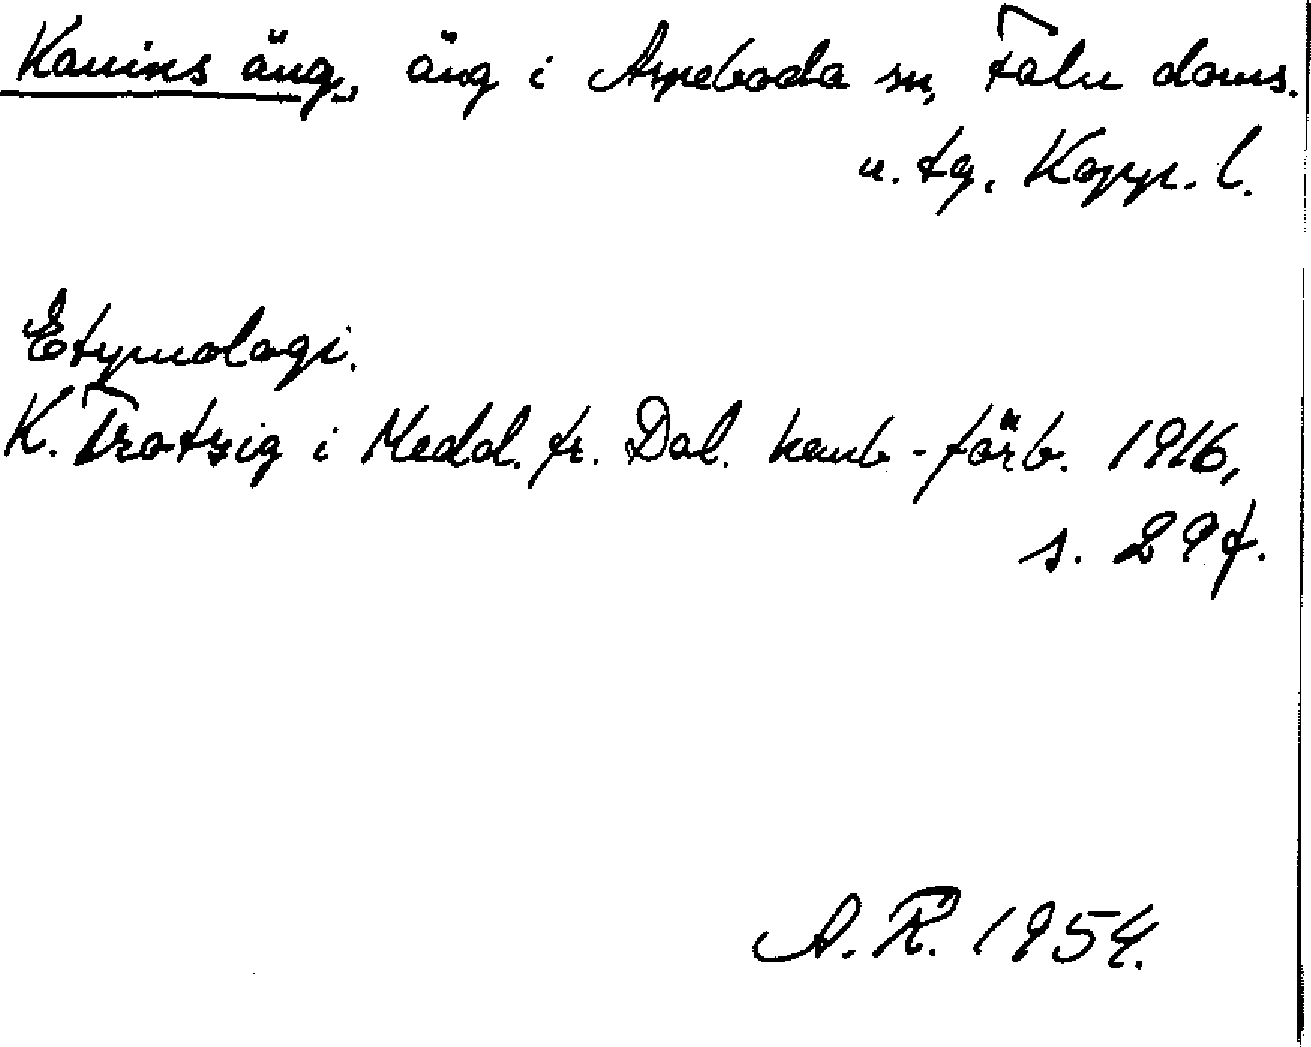 Kanins äng, äng i Aspeboda sn, Falu doms.
u. tg, Kopp. l.
Etymologi.
K. Trotzig i Medd. fr. Dal. hemb-förb. 1916,
s. 29 f.
A. R. 1954.